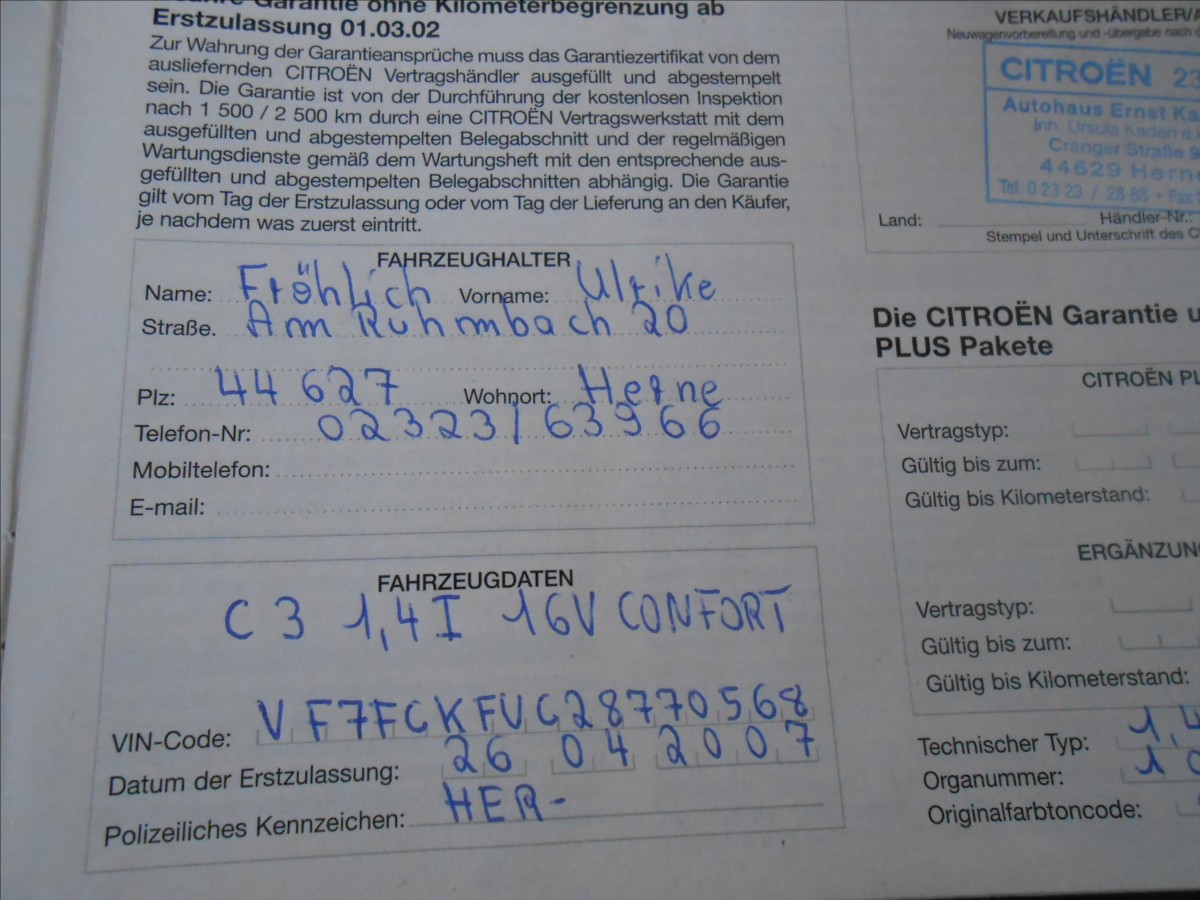 Garantie ohne Kilometerbegrenzung ab
Erstzulassung 01.03.02
Zur Wahrung der Garantieansprüche muss das Garantiezertifikat von dem
ausliefernden CITROËN Vertragshändler ausgefüllt und abgestempelt
sein. Die Garantie ist von der Durchführung der kostenlosen Inspektion
nach 1 500 / 2 500 km durch eine CITROËN Vertragswerkstatt mit dem
ausgefüllten und abgestempelten Belegabschnitt und der regelmäßigen
Wartungsdienste gemäß dem Wartungsheft mit den entsprechende aus-
gefüllten und abgestempelten Belegabschnitten abhängig. Die Garantie
gilt vom Tag der Erstzulassung oder vom Tag der Lieferung an den Käufer,
je nachdem was zuerst eintritt.
FAHRZEUGHALTER
Name: Fröhlich Vorname: Ulrike
Straße. Am Ruhmbach 20
Plz: 44 627 Wohnort: Herne
Telefon-Nr: 02323/63966
Mobiltelefon:
E-mail:
FAHRZEUGDATEN
C 3 1,4 I 16V CONFORT
VIN-Code: VF7FCKFUC28770568
Datum der Erstzulassung: 26 04 2007
Polizeiliches Kennzeichen: HER-
VERKAUFSHÄNDLER/
Neuwagenvorbereitung und -übergabe nach
CITROËN 23
Autohaus Ernst
Inh. Ursula Kaden
Cranger Straße
44629 Herne
Tel. 0 23 23 / 28 88 • Fax
Land: Händler-Nr.:
Stempel und Unterschrift des
Die CITROËN Garantie
PLUS Pakete
CITROËN
Vertragstyp:
Gültig bis zum:
Gültig bis Kilometerstand:
Vertragstyp:
Gültig bis zum:
Gültig bis Kilometerstand:
Technischer Typ: 1,4
Organummer: 10
Originalfarbtoncode: